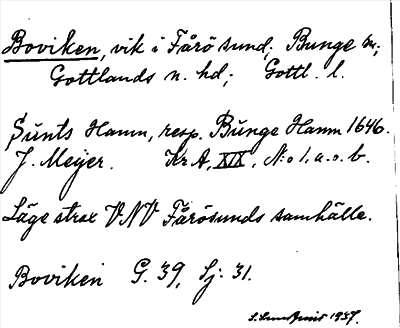 Boviken, vik i Fårö sund; Bunge sn;
Gottlands n. hd; Gottl. l.
Sunts Hamn, resp. Bunge Hamn 1646.
J. Meijer. Kr A, XIX, N:o 1, a. o. b.
Läge strax VNV Fårösunds samhälle.
Boviken G. 39, Sj: 31.
1937.